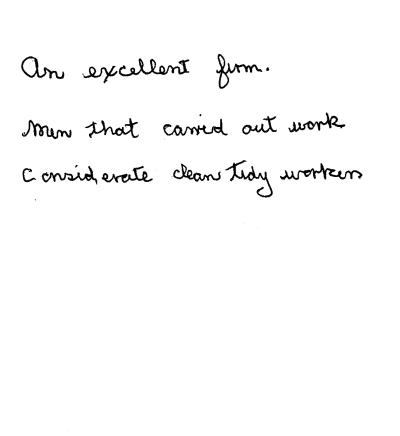 An excellent firm.
Men that carried out work
Considerate clean tidy workers